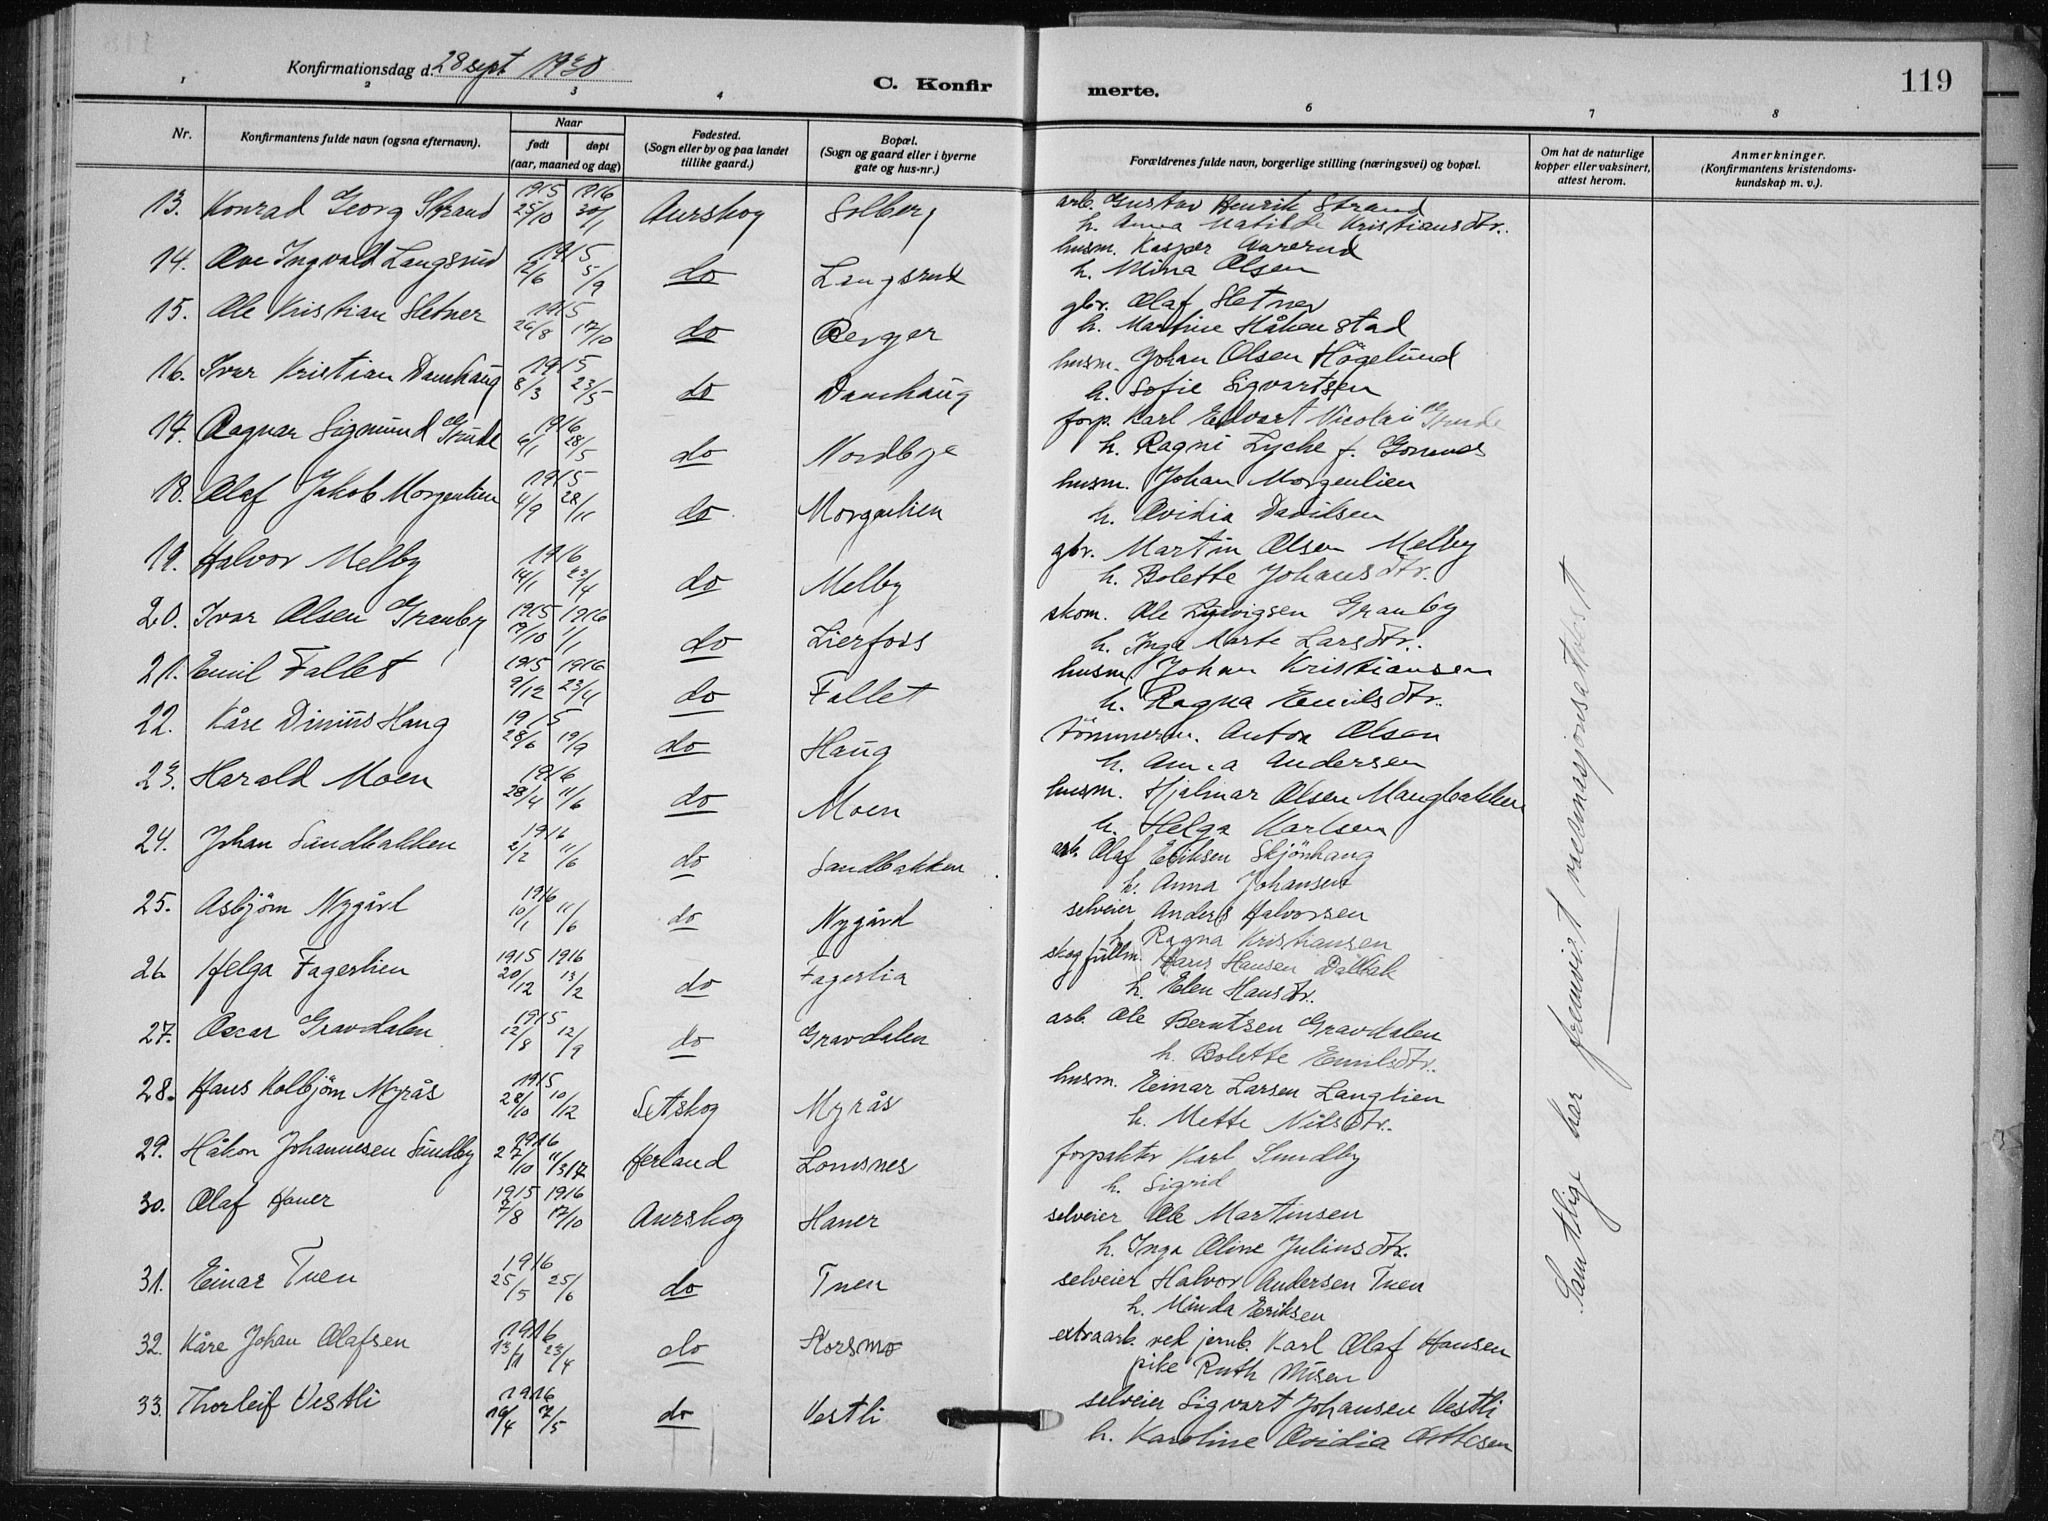 Konfirmationsdag d. 28 sept 1930
C. Konfirmerte.
119
1 2 3 4 6 7 8
Nr.
Konfirmantens fulde navn (ogsaa efternavn).
Naar
født døpt
(aar, maaned og dag)
Fødested.
(Sogn eller by og paa landet
tillike gaard.)
Bopæl.
(Sogn og gaard eller i byerne
gate og hus-nr.)
Forældrenes fulde navn, borgerlige stilling (næringsvei) og bopæl.
Om hat de naturlige
kopper eller vaksinert,
attest herom.
Anmerkninger.
(Konfirmantens kristendoms-
kundskap m. v.).
13. Konrad Georg Strand 1915 25/10 1916 30/1 Aurskog Solberg arb. Gustav Henrik Strand
h. Anna Matilde Kristiansdtr.
14. Ove Ingvald Langsrud 1915 12/6 5/9 do Langsrud husm. Kasper Aurerud
h. Mina Olsen
15. Ole Kristian Sletner 1915 26/8 17/10 do Berger gbr. Olaf Sletner
h. Martine Håkenstad
16. Ivar Kristian Damhaug 1915 8/3 23/5 do Damhaug husm. Johan Olsen Högelund
h. Sofie Sigvartsen
17. Ragnar Sigmund Grude 1916 6/1 28/5 do Nordbye forp. Karl Edvart Nicolai Grude
h. Ragni Lyche f.
18. Olaf Jakob Morgenlien 1915 4/9 28/11 do Morgenlien husm. Johan Morgenlien
h. Ovidia Davidsen
19. Halvor Melby 1916 14/1 22/4 do Melby gbr. Martin Olsen Melby
h. Bolette Johansdtr.
20. Ivar Olsen Granby 1915 19/10 1916 1/1 do Lierfoss skom. Ole Ludvigsen Granby
h. Inga Marte Larsdtr.
21. Emil Fallet 1915 9/12 1916 23/4 do Fallet husm. Johan Kristiansen
h. Ragna Emilsdtr.
22. Kåre Dinius Haug 1915 28/6 19/9 do Haug tömmerm. Anton Olsen
h. Anna Andersen
23. Harald Moen 1916 28/4 11/6 do Moen husm. Hjalmar Olsen Mangbakken
h. Helga Karlsen
24. Johan Sandbakken 1916 2/2 11/6 do Sandbakken arb. Olaf Eriksen Skjönhaug
h. Anna Johansen
25. Asbjörn Nygård 1916 10/1 11/6 do Nygård selveier Anders Halvorsen
h. Ragna Kristiansen
26 Helga Fagerlien 1915 20/12 1916 13/2 do Fagerlia skogfullm. Hans Hansen Dalbak
h. Elen Hansdtr.
27. Oscar Gravdalen 1915 12/8 12/9 do Gravdalen arb. Ole Berntsen Gravdalen
h. Bolette Emilsdtr.
28. Hans Kolbjörn Myrås 1915 28/10 10/12 Setskog Myrås husm. Einar Larsen Langlien
h. Mette Nilsdtr.
29. Håkon Johannessen Sundby 1916 27/10 11/3 17 Herland Lomsnes forpakter Karl Sundby
h. Sigrid
30. Olaf Haner 1915 7/8 1916 17/10 Aurskog Haner selveier Ole Martinsen
h. Inga Oline Juliusdtr.
31. Einar Tuen 1916 25/5 25/6 do Tuen selveier Halvor Andersen Tuen
h. Minda Eriksen
32. Kåre Johan Olafsen 1916 13/1 23/4 do Korsmo extraarb. ved jernb. Karl Olaf Hansen
pike Ruth Nilsen
33. Thorleif Vestli 1916 16/4 7/5 do Vestli selveier Sigvart Johansen Vestli
h. Karoline Ovidia Ottesen
Samtlige har fremvist vaccinasjonsattest